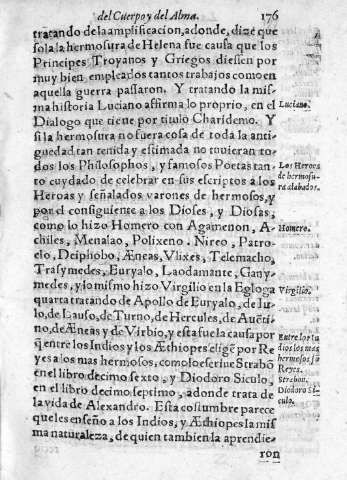 del Cuerpo y del Alma. 176
tratando de la amplificacion, adonde, dize que
sola la hermosura de Helena fue causa que los
Principes Troyanos y Griegos diessen por
muy bien empleados tantos trabajos como en
aquella guerra passaron. Y tratando la mis-
ma historia Luciano affirma lo proprio, en el
Luciano.
Dialogo que tiene por titulo Charidemo. Y
si la hermosura no fuera cosa de toda la anti-
guedad tan tenida y estimada no tuuieran to-
dos los Philosophos, y famosos Poetas tan-
Los Heroes
to cuydado de celebrar en sus escriptos a los
de hermosu-
Heroas y señalados varones de hermosos, y
ra alabados.
por el consiguiente a los Dioses, y Diosas,
como lo hizo Homero con Agamenon, A-
Homero.
chiles, Menalao, Polixeno. Nireo, Patro-
elo, Deiphobo, Æneas, Vlixes, Telemacho,
Trasymedes, Euryalo, Laodamante, Gany-
medes, y lo mismo hizo Virgilio en la Egloga
Virgilio.
quarta tratando de Apollo de Euryalo, de Iu-
lo, de Lauso, de Turno, de Hercules, de Auẽti-
no, de Æneas y de Virbio, y esta fue la causa por
Entre los In
q̃ entre los Indios y los Æthiopes eligẽ por Re
dios los mas
yes a los mas hermosos, como lo escriue Strabõ
hermosos sõ
Reyes.
en el libro decimo sexto, y Diodoro Siculo,
Strabon.
en el libro decimo septimo, adonde trata de
Diodoro Si-
culo.
la vida de Alexandro. Esta costumbre parece
que les enseño a los Indios, y Æthiopes la mis
ma naturaleza, de quien tambien la aprendie-
ron